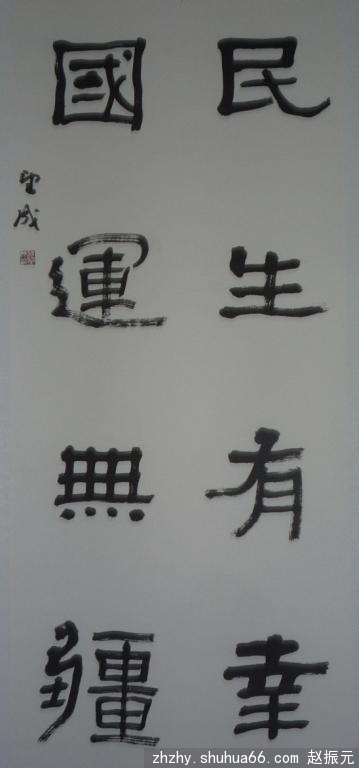 民生有幸
國運無疆
望成
zhzhy.shuhua66.com 赵振元